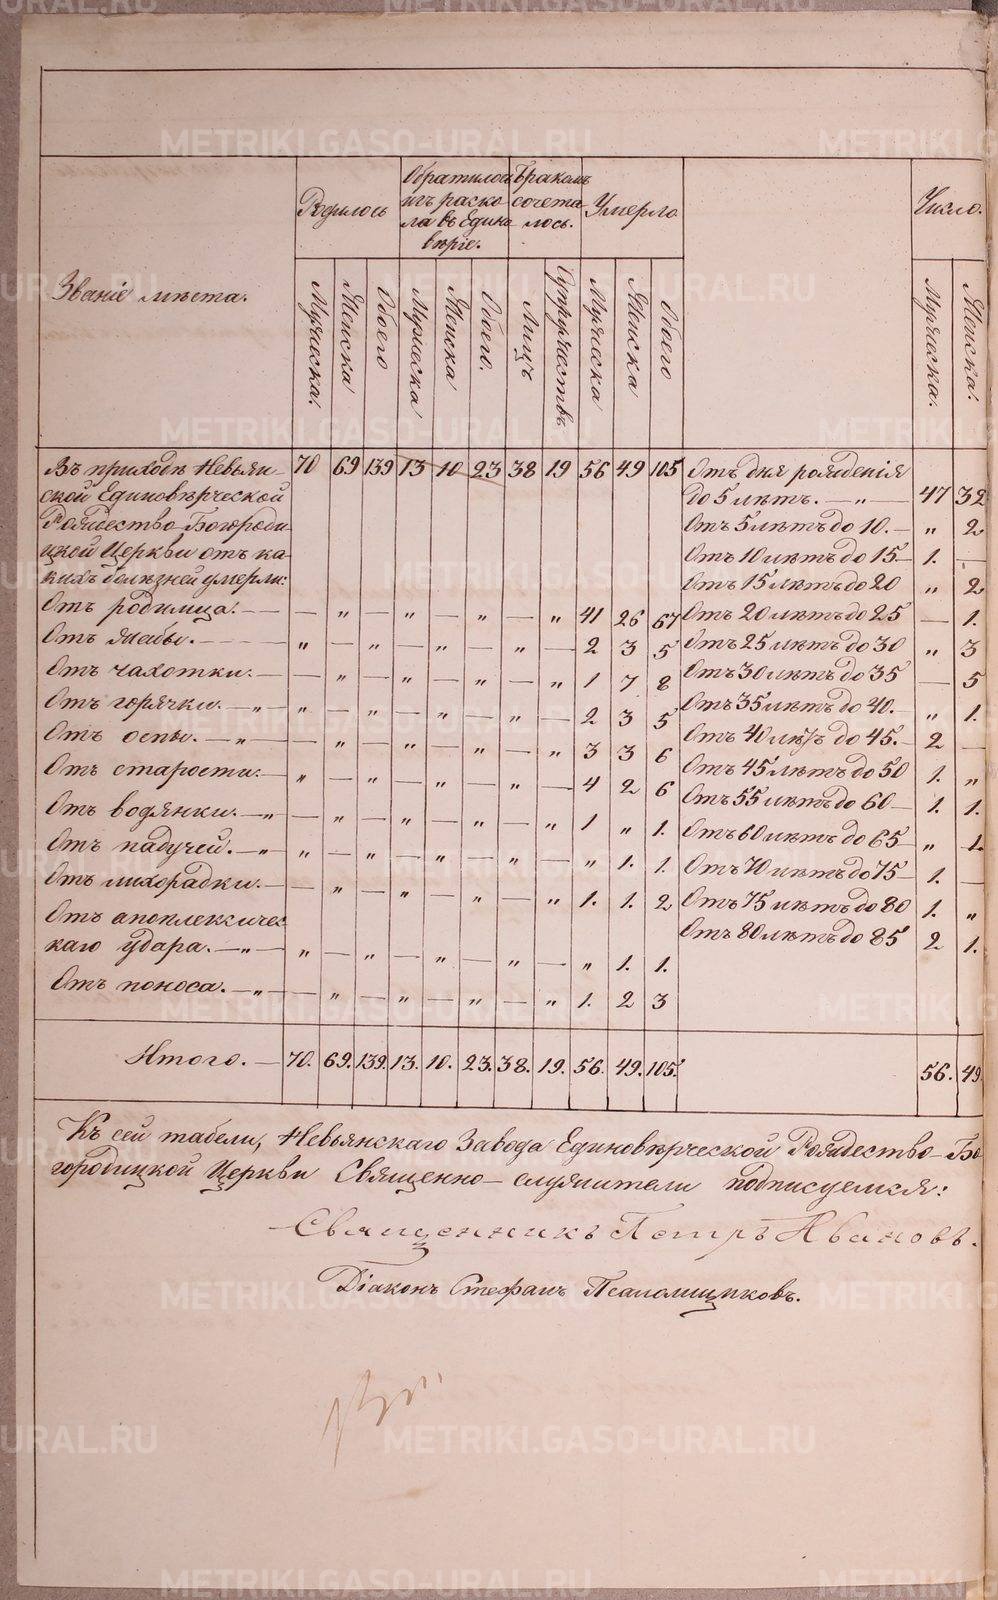 Званіе мѣста.
Родилось
Обратилось
изъ раско
ла въ Едино
вѣріе.
Бракомъ
сочета
лось.
Умерло
Число.
Мужеска.
Женска
Обоего
Мужеска
Женска
Обоего.
Лицъ
Супружествъ
Мужеска
Женска
Обоего
Мужеска.
Женска.
Въ приходѣ Невьян- 70 69 139 13 10 23 38 19 56 49 105 Отъ дня рожденія
ской Единовѣрческой до 5 лѣтъ. — „ — 47 32
Рождество-Богороди Отъ 5 лѣтъ до 10. — „ 2
цкой Церкви отъ ка- Отъ 10 лѣтъ до 15 — 1. —
кихъ болѣзней умерли: Отъ 15 лѣтъ до 20 „ 2
Отъ родимца. — — „ — „ — „ — „ 41 26 67 Отъ 20 лѣтъ до 25 — 1.
Отъ жабы. — „ — „ — „ — „ — 2 3 5 Отъ 25 лѣтъ до 30 „ 3
Отъ чахотки. — — „ — „ — „ — „ 1 7 8 Отъ 30 лѣтъ до 35 — 5
Отъ горячки. — „ — „ — „ — „ — „ — 2 3 5 Отъ 35 лѣтъ до 40. — „ 1.
Отъ оспы. — „ — — „ — „ — „ — „ 3 3 6 Отъ 40 лѣтъ до 45. — 2 —
Отъ старости. — „ — „ — „ — „ — 4 2 6 Отъ 45 лѣтъ до 50 1. „
Отъ водянки. — „ — „ — „ — „ — „ 1 „ 1. Отъ 55 лѣтъ до 60 — 1. 1.
Отъ падучей. — „ „ — „ — „ — „ — „ 1. 1. Отъ 60 лѣтъ до 65 — „ 1.
Отъ лихорадки. — — „ — „ — „ — „ 1. 1. 2 Отъ 70 лѣтъ до 75 — 1. —
Отъ апоплексичес Отъ 75 лѣтъ до 80 1. „
каго удара. — „ — „ — „ — „ — „ — „ 1. 1. Отъ 80 лѣтъ до 85 2 1.
Отъ поноса. — „ — — „ — „ — „ — „ 1. 2 3
Итого. — 70. 69. 139. 13. 10. 23. 38. 19. 56. 49. 105. 56. 49
Къ сей табели, Невьянскаго Завода Единовѣрческой Рождество-Бо
городицкой Церкви Священно-служители подписуемся:
Священникъ Петръ Ивановъ.
Діаконъ Стефанъ Псаломщиковъ.
METRIKI.GASO-URAL.RU